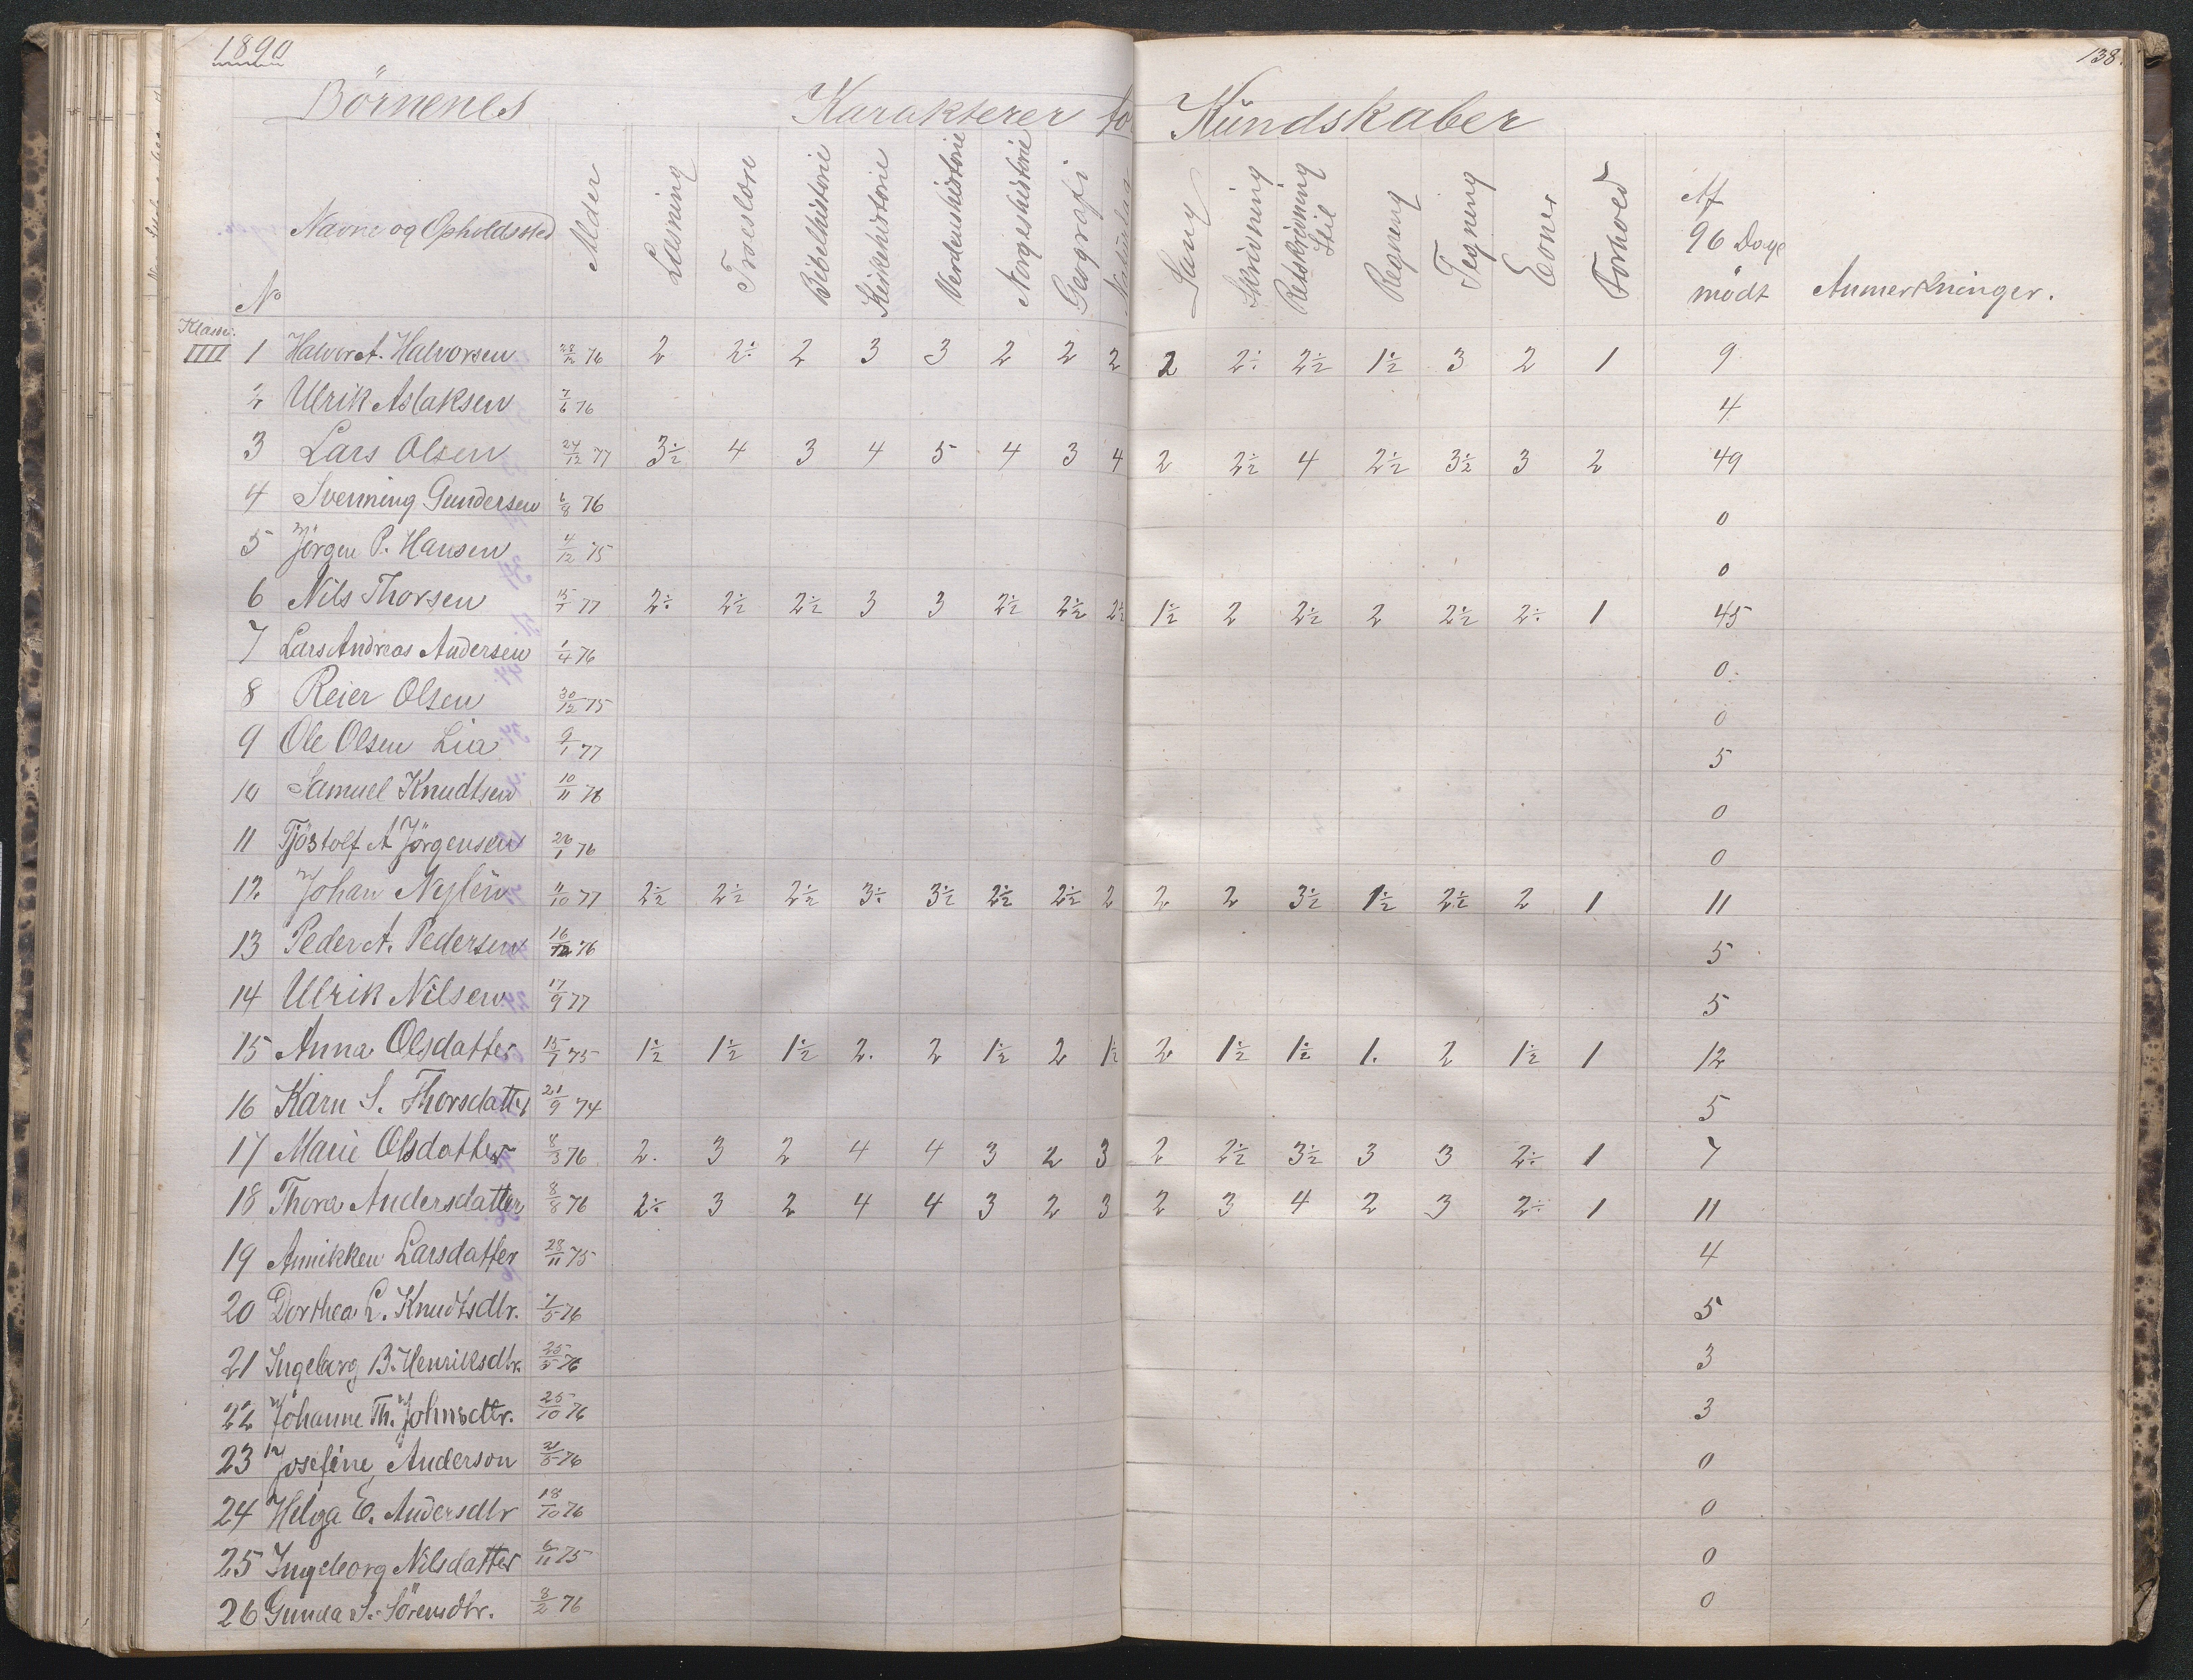 1890
138.
Börnenes Karakterer for Kundskaber
No Navne og Opholdssted Alder Læsning Troeslære Bibelhistorie Kirkehistorie Verdenshistorie Norgeshistorie Geografi Naturlære Sang Skrivning Retskrivning Stil Regning Tegning Evner Forhold Af 96 Dage mödt Anmerkninger.
Klasse:
IIII 1 Halvor A. Halvorsen 76 2 2÷ 2 3 3 2 2 2 2 2÷ 2½ 1½ 3 2 1 9
2 Ulrik Aslaksen 7/6 76 4
3 Lars Olsen 24/12 77 3½ 4 3 4 5 4 3 4 2 2½ 4 2½ 3½ 3 2 49
4 Svenning Gundersen 6/8 76 0
5 Jörgen P. Hansen 4/12 75 0
6 Nils Thorsen 15/7 77 2÷ 2½ 2½ 3 3 2½ 2½ 2½ 1½ 2 2½ 2 2½ 2÷ 1 45
7 Lars Andreas Andersen 1/4 76 0
8 Reier Olsen 30/12 75 0
9 Ole Olsen Lia 9/1 77 5
10 Samuel Knudtsen 10/11 76 0
11 Tjöstolf A Jörgensen 26/1 76 0
12 Johan Nylén 11/10 77 2½ 2½ 2½ 3÷ 3½ 2½ 2½ 2 2 2 3½ 1½ 2½ 2 1 11
13 Peder A. Pedersen 16/12 76 5
14 Ulrik Nilsen 17/9 77 5
15 Anna Olsdatter 15/7 75 1½ 1½ 1½ 2. 2 1½ 2 1½ 2 1½ 1½ 1. 2 1½ 1 12
16 Karn S. Thorsdatter 21/9 74 5
17 Marie Olsdatter 8/3 76 2. 3 2 4 4 3 2 3 2 2½ 3½ 3 3 2÷ 1 7
18 Thora Andersdatter 8/8 76 2÷ 3 2 4 4 3 2 3 2 3 4 2 3 2÷ 1 11
19 Annikken Larsdatter 28/11 75 4
20 Dorthea L. Knudtsdtr. 1/5 76 5
21 Ingeborg B. Henriksdtr. 25/5 76 3
22 Johanne Th. Johnsdtr. 25/10 76 3
23 Josefine Anderson 31/5 76 0
24 Helga E. Andersdtr 18/10 76 0
25 Ingeborg Nilsdatter 6/11 75 0
26 Gunda S. Sörensdtr. 8/2 76 0